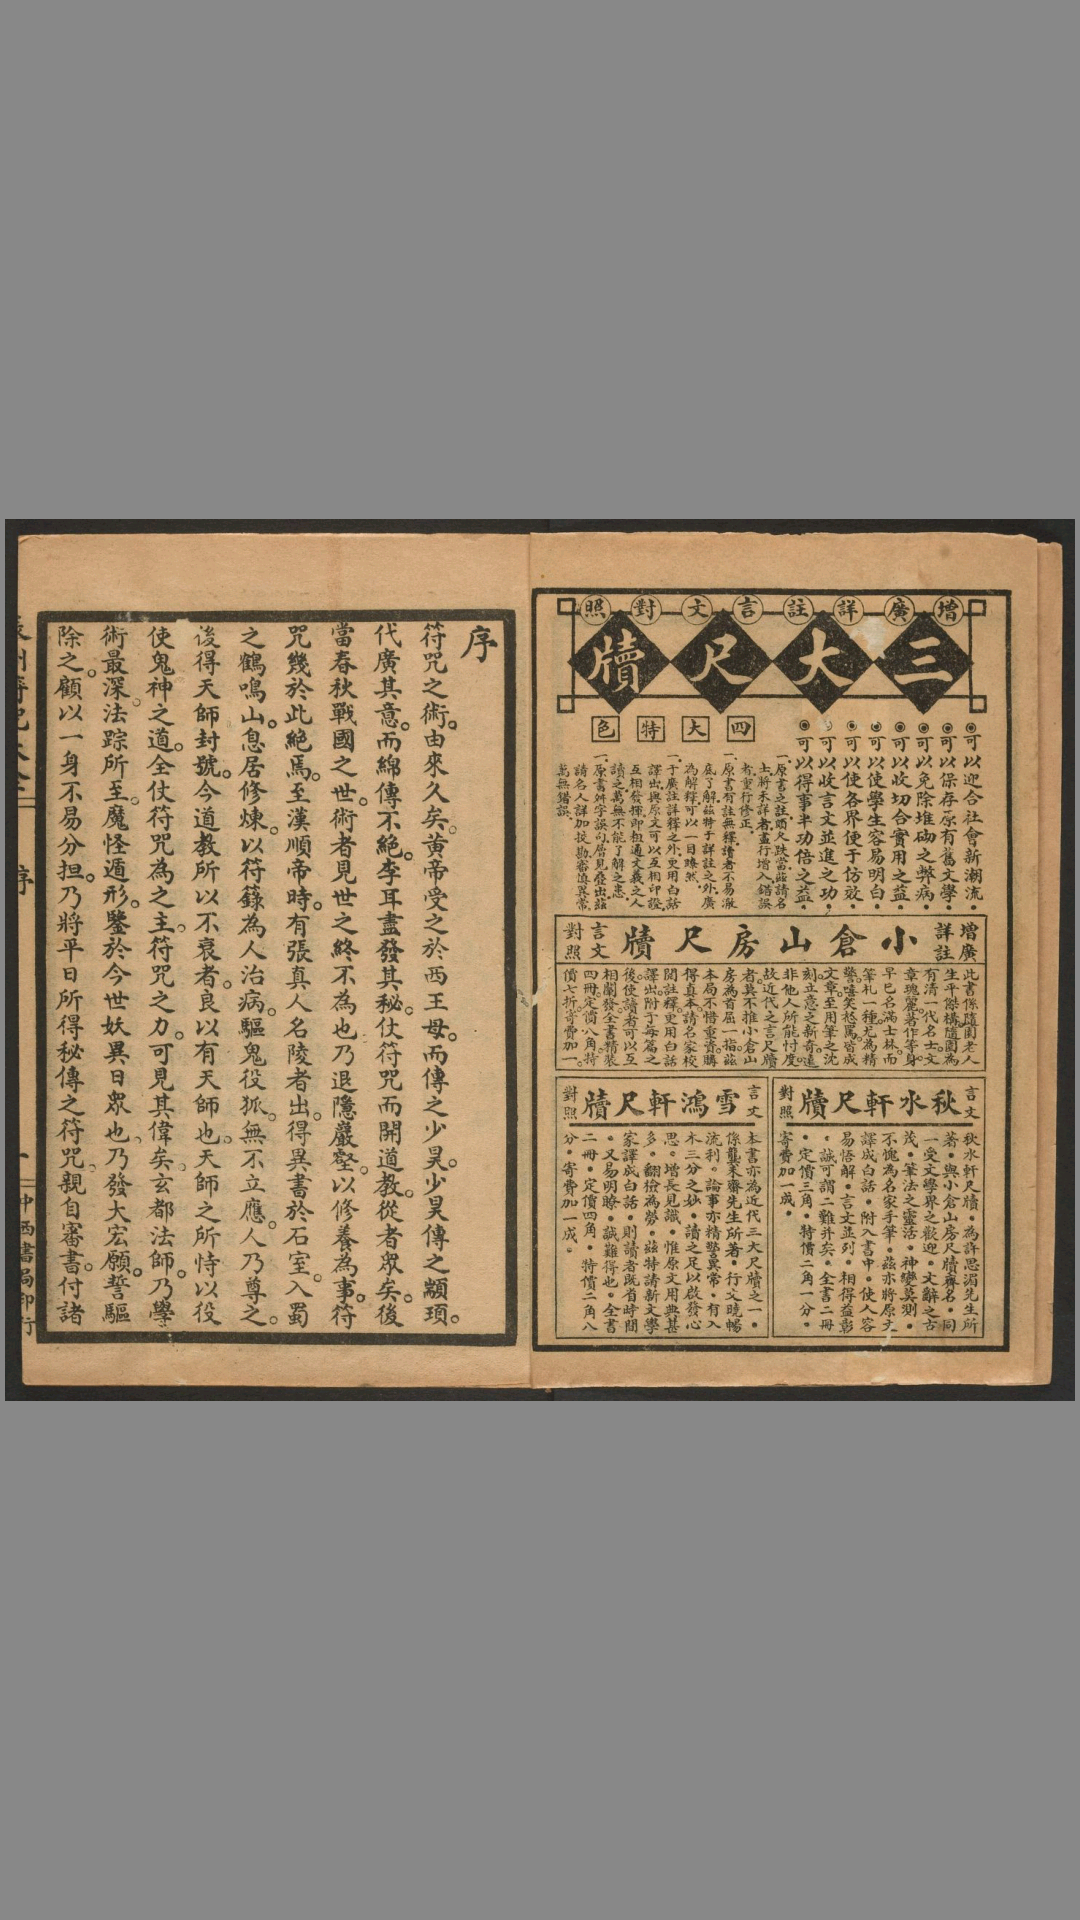 增廣詳註言文對照
三大尺牘
◉可以迎合社會新潮流•
◉可以保存原有舊文學•
◉可以免除堆砌之弊病•
◉可以收切合實用之益•
◉可以使學生容易明白•
◉可以使各界便于仿效•
◉可以收言文並進之功•
◉可以得事半功倍之益•
四大特色
一原書之註頭欠跌當茲請名
士將未詳者盡行增入錯誤
者重行修正.
一原書有註無釋.讀者不易澈
底了解.茲特于詳註之外.廣
為解釋.可以一目瞭然.
一于廣註詳釋之外.更用白話
譯出.與原文可以互相印證.
互相發揮.即粗通文義之人.
讀之.萬無不能了解之患.
一原書舛字誤句.層見疊出.茲
請名人詳加校勘.審慎異常.
萬無錯誤.
增廣詳註
小倉山房尺牘
言文對照
此書係隨園老人
生平傑構.隨園為
有清一代名士.文
章瑰麗.著作等身.
早已名滿士林.而
筆札一種.尤為精
警.嘻笑怒罵.皆成
文章.至用筆之沈
刻.立意之新奇.遠
非他人所能忖度.
故近代之言尺牘
者.莫不推小倉山
房為首屈一指.茲
本局不惜重資.購
得真本.請名家校
閱註釋.更用白話
譯出.附于每篇之
後.使讀者可以互
相闡發.全書精裝
四冊.定價八角.特
價七折.寄費加一.
言文對照
秋水軒尺牘
秋水軒尺牘•為許思湄先生所
著•與小倉山房尺牘齊名•同
一受文學界之歡迎•文辭之古
茂•筆法之靈活•神變莫測•
不愧為名家手筆•茲亦將原文
譯成白話•附入書中•使人容
易悟解•言文並列•相得益彰
•誠可謂二難并矣•全書二冊
•定價三角•特價二角一分•
寄費加一成•
言文對照
雪鴻軒尺牘
本書亦為近代三大尺牘之一•
係龔未齋先生所著•行文曉暢
流利•論事亦精警異常•有入
木三分之妙•讀之足以啟發心
思•增長見識•惟原文用典甚
多•翻檢為勞•茲特請新文學
家譯成白話•則讀者既省時間
•又易明瞭•誠難得也•全書
二冊•定價四角•特價二角八
分•寄費加一成。
序
符咒之術。由來久矣。黃帝受之於西王母。而傳之少昊。少昊傳之顓頊。
代廣其意。而綿傳不絕。李耳盡發其秘。仗符咒而開道教。從者眾矣。後
當春秋戰國之世。術者見世之終不為也。乃退隱巖壑。以修養為事。符
咒幾於此絕焉。至漢順帝時。有張真人名陵者出。得異書於石室。入蜀
之鶴鳴山。息居修煉。以符籙為人治病。驅鬼役狐。無不立應。人乃尊之。
後得天師封號。今道教所以不衰者。良以有天師也。天師之所恃以役
使鬼神之道。全仗符咒為之主。符咒之力。可見其偉矣。玄都法師。乃學
術最深。法踪所至。魔怪遁形。鑒於今世妖異日眾也。乃發大宏願。誓驅
除之。顧以一身不易分担。乃將平日所得秘傳之符咒。親自審書。付諸
序
一
中西書局印行